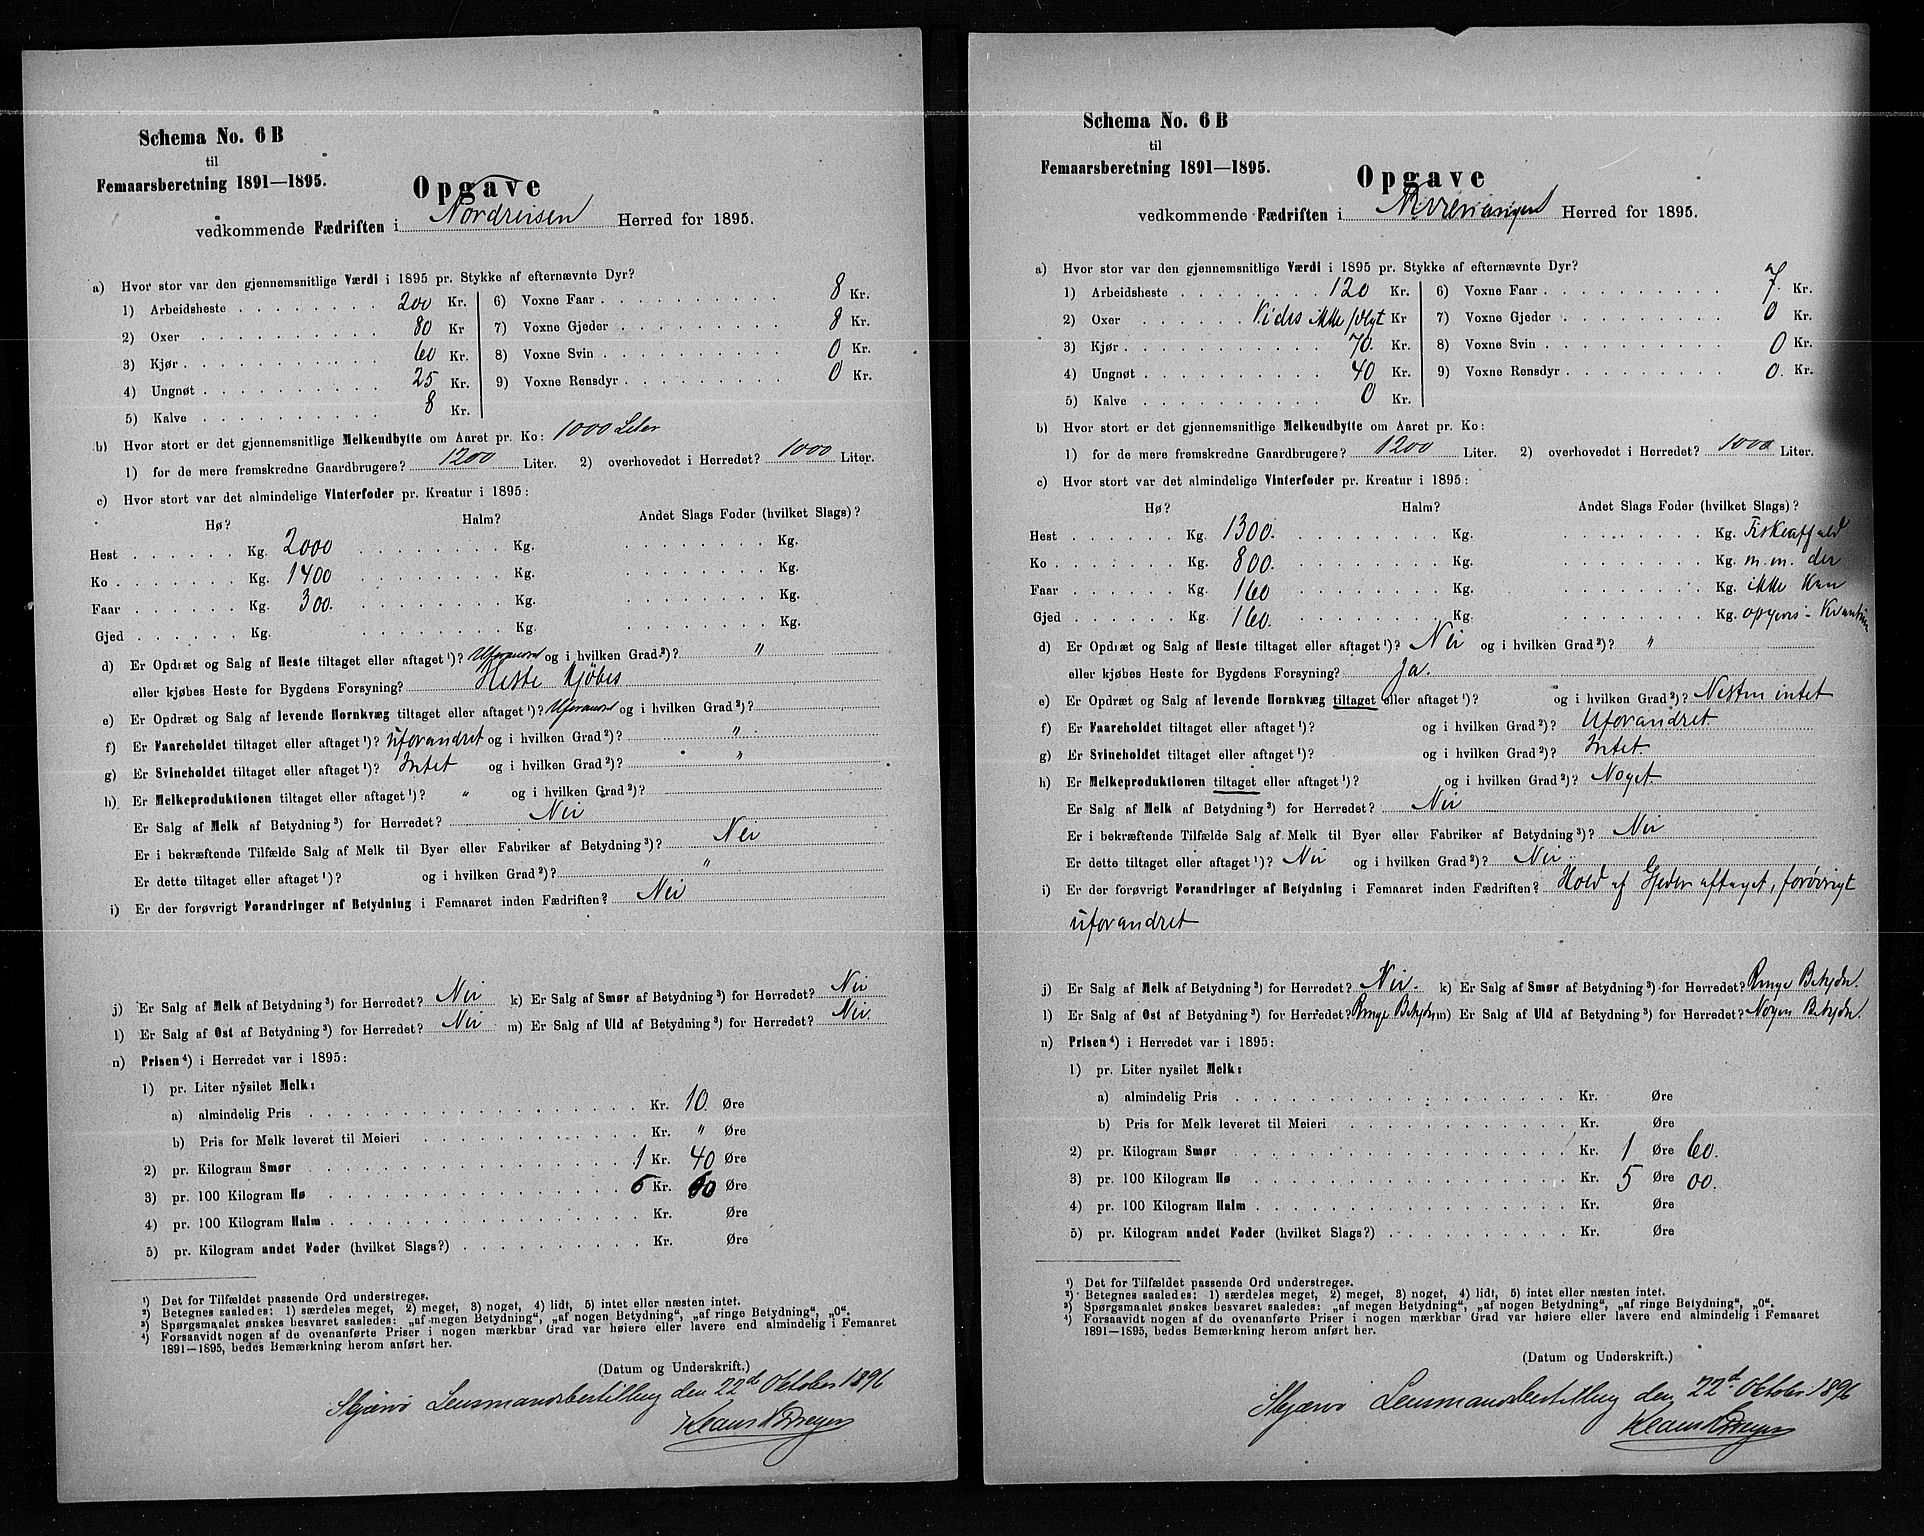 Schema No. 6 B
til
Femaarsberetning 1891—1895.
Opgave
vedkommende Fædriften i Nordreisen Herred for 1895.
a) Hvor stor var den gjennemsnitlige Værdi i 1895 pr. Stykke af efternævnte Dyr?
1) Arbeidsheste 200 Kr. 6) Voxne Faar 8 Kr.
2) Oxer 80 Kr 7) Voxne Gjeder 8 Kr.
3) Kjør 60 Kr. 8) Voxne Svin 0 Kr.
4) Ungnøt 25 Kr. 9) Voxne Rensdyr 0 Kr.
5) Kalve 8 Kr.
b) Hvor stort er det gjennemsnitlige Melkeudbytte om Aaret pr. Ko: 1000 Liter
1) for de mere fremskredne Gaardbrugere? 1200 Liter. 2) overhovedet i Herredet? 1000 Liter.
c) Hvor stort var det almindelige Vinterfoder pr. Kreatur i 1895:
Hø? Halm? Andet Slags Foder (hvilket Slags)?
Hest Kg. 2000 Kg. Kg.
Ko Kg. 1400 Kg. Kg.
Faar Kg. 300. Kg. Kg.
Gjed Kg. Kg. Kg.
d) Er Opdræt og Salg af Heste tiltaget eller aftaget¹)? Uforandret og i hvilken Grad²)? "
eller kjøbes Heste for Bygdens Forsyning? Heste kjøbes
e) Er Opdræt og Salg af levende Hornkvæg tiltaget eller aftaget¹)? Uforandret og i hvilken Grad²)?
f) Er Faareholdet tiltaget eller aftaget¹)? uforandret og i hvilken Grad²)? "
g) Er Svineholdet tiltaget eller aftaget¹)? Intet og i hvilken Grad²)? "
h) Er Melkeproduktionen tiltaget eller aftaget¹)? " og i hvilken Grad²)?
Er Salg af Melk af Betydning³) for Herredet? Nei
Er i bekræftende Tilfælde Salg af Melk til Byer eller Fabriker af Betydning³)? Nei
Er dette tiltaget eller aftaget¹)? og i hvilken Grad²)? "
i) Er der forøvrigt Forandringer af Betydning i Femaaret inden Fædriften? Nei
j) Er Salg af Melk af Betydning³) for Herredet? Nei k) Er Salg af Smør af Betydning³) for Herredet? Nei
l) Er Salg af Ost af Betydning³) for Herredet? Nei m) Er Salg af Uld af Betydning³) for Herredet? Nei.
n) Prisen⁴) i Herredet var i 1895:
1) pr. Liter nysilet Melk:
a) almindelig Pris Kr. 10. Øre
b) Pris for Melk leveret til Meieri Kr. " Øre
2) pr. Kilogram Smør 1 Kr. 40 Øre
3) pr. 100 Kilogram Hø Kr. Øre
4) pr. 100 Kilogram Halm Kr. Øre
5) pr. Kilogram andet Foder (hvilket Slags?) Kr. Øre
¹) Det for Tilfældet passende Ord understreges.
²) Betegnes saaledes: 1) særdeles meget, 2) meget, 3) noget, 4) lidt, 5) intet eller næsten intet.
³) Spørgsmaalet ønskes besvaret saaledes: „af megen Betydning“, „af nogen Betydning“, „af ringe Betydning“, „0“.
⁴) Forsaavidt nogen af de ovenanførte Priser i nogen mærkbar Grad var høiere eller lavere end almindelig i Femaaret
1891—1895, bedes Bemærkning herom anført her.
(Datum og Underskrift.)
Skjærvø Lensmandsbestilling den 22de Oktober 1896
Schema No. 6 B
til
Femaarsberetning 1891—1895.
Opgave
vedkommende Fædriften i Herred for 1895.
a) Hvor stor var den gjennemsnitlige Værdi i 1895 pr. Stykke af efternævnte Dyr?
1) Arbeidsheste 120 Kr. 6) Voxne Faar 7. Kr.
2) Oxer Vides ikke solgt Kr 7) Voxne Gjeder 0 Kr.
3) Kjør 70. Kr. 8) Voxne Svin 0 Kr.
4) Ungnøt 40 Kr. 9) Voxne Rensdyr 0. Kr.
5) Kalve 0 Kr.
b) Hvor stort er det gjennemsnitlige Melkeudbytte om Aaret pr. Ko:
1) for de mere fremskredne Gaardbrugere? 1200 Liter. 2) overhovedet i Herredet? 1000 Liter.
c) Hvor stort var det almindelige Vinterfoder pr. Kreatur i 1895:
Hø? Halm? Andet Slags Foder (hvilket Slags)?
Hest Kg. 1300. Kg. Kg. Fiskeaffald
Ko Kg. 800. Kg. Kg. m.m. der
Faar Kg. 160 Kg. Kg. ikke kan
Gjed Kg. 160. Kg. Kg. opgives i Kvantum
d) Er Opdræt og Salg af Heste tiltaget eller aftaget¹)? Nei og i hvilken Grad²)? "
eller kjøbes Heste for Bygdens Forsyning? Ja.
e) Er Opdræt og Salg af levende Hornkvæg tiltaget eller aftaget¹)? og i hvilken Grad²)? Nesten intet
f) Er Faareholdet tiltaget eller aftaget¹)? og i hvilken Grad²)? Uforandret
g) Er Svineholdet tiltaget eller aftaget¹)? og i hvilken Grad²)? Intet.
h) Er Melkeproduktionen tiltaget eller aftaget¹)? og i hvilken Grad²)? Noget
Er Salg af Melk af Betydning³) for Herredet? Nei
Er i bekræftende Tilfælde Salg af Melk til Byer eller Fabriker af Betydning³)? Nei
Er dette tiltaget eller aftaget¹)? Nei og i hvilken Grad²)? Nei.
i) Er der forøvrigt Forandringer af Betydning i Femaaret inden Fædriften? Hold af Gjeder aftaget, forøvrigt
uforandret
j) Er Salg af Melk af Betydning³) for Herredet? Nei. k) Er Salg af Smør af Betydning³) for Herredet? Ringe Betydn.
l) Er Salg af Ost af Betydning³) for Herredet? Ringe Betydn m) Er Salg af Uld af Betydning³) for Herredet? Nogen Betydn.
n) Prisen⁴) i Herredet var i 1895:
1) pr. Liter nysilet Melk:
a) almindelig Pris Kr. Øre
b) Pris for Melk leveret til Meieri Kr. Øre
2) pr. Kilogram Smør Kr. 1 Øre 60.
3) pr. 100 Kilogram Hø Kr. 5 Øre 00.
4) pr. 100 Kilogram Halm Kr. Øre
5) pr. Kilogram andet Foder (hvilket Slags?) Kr. Øre
¹) Det for Tilfældet passende Ord understreges.
²) Betegnes saaledes: 1) særdeles meget, 2) meget, 3) noget, 4) lidt, 5) intet eller næsten intet.
³) Spørgsmaalet ønskes besvaret saaledes: „af megen Betydning“, „af nogen Betydning“, „af ringe Betydning“, „0“.
⁴) Forsaavidt nogen af de ovenanførte Priser i nogen mærkbar Grad var høiere eller lavere end almindelig i Femaaret
1891—1895, bedes Bemærkning herom anført her.
(Datum og Underskrift.)
Skjærvø Lensmandsbestilling den 22de Oktober 1896